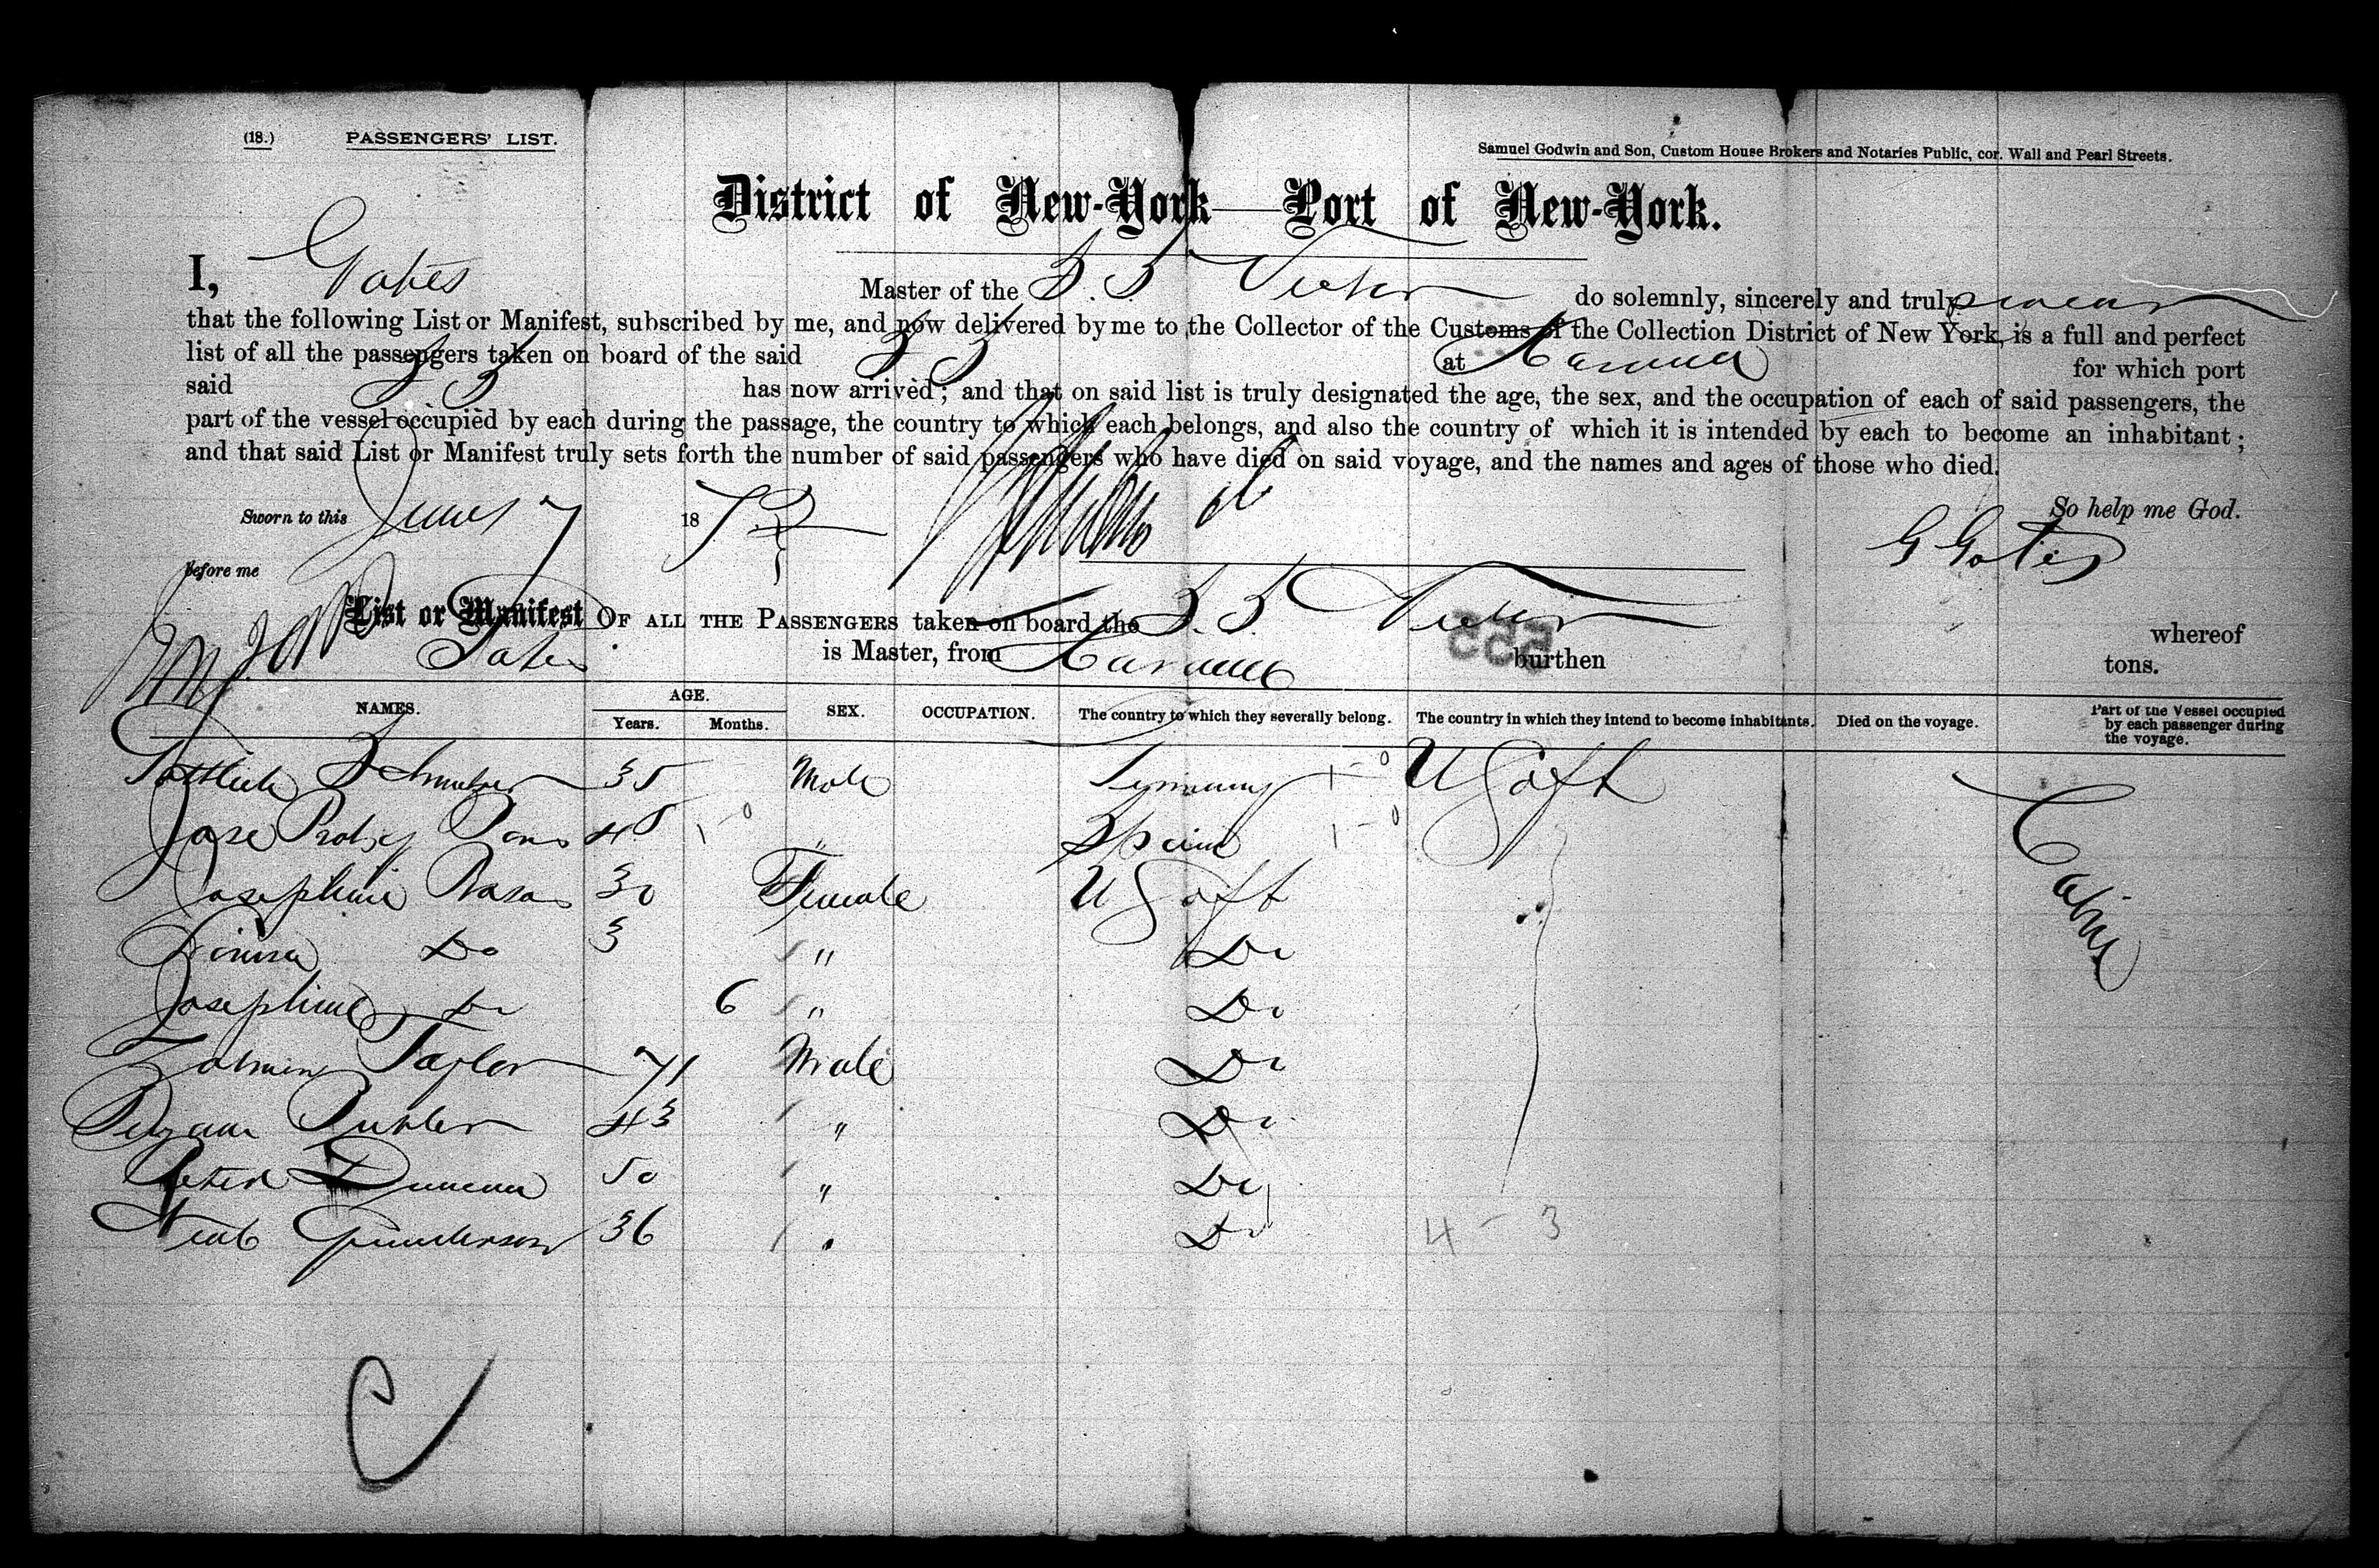 (18.) PASSENGERS' LIST.
Samuel Godwin and Son, Custom House Brokers and Notaries Public, cor. Wall and Pearl Streets.
District of New-York—Port of New-York.
I, Gates Master of the S.S. do solemnly, sincerely and truly swear
that the following List or Manifest, subscribed by me, and now delivered by me to the Collector of the Customs of the Collection District of New York, is a full and perfect
list of all the passengers taken on board of the said SS at Havana for which port
said SS has now arrived; and that on said list is truly designated the age, the sex, and the occupation of each of said passengers, the
part of the vessel occupied by each during the passage, the country to which each belongs, and also the country of which it is intended by each to become an inhabitant;
and that said List or Manifest truly sets forth the number of said passengers who have died on said voyage, and the names and ages of those who died.
So help me God.
Sworn to this June 7 187
G Gates
before me
List or Manifest OF ALL THE PASSENGERS taken on board the S.S. whereof
Gates is Master, from Havana burthen tons.
555
NAMES. AGE. Years. Months. SEX. OCCUPATION. The country to which they severally belong. The country in which they intend to become inhabitants. Died on the voyage. Part of the Vessel occupied by each passenger during the voyage.
Gottlieb 35 Male Germany 1-0 U S of A Cabin
Jose Pons 45 1-0 " Spain 1-0
Josephine 30 Female U S of A
Louisa Do 3 " Do
Josephine Do 6 " Do
Taylor 71 Male Do
43 " Do
Peter Duncan 50 " Do
Gunderson 36 " Do 4-3
C